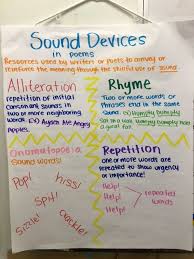 Sound Devices
in poems
Resources used by writers or poets to convey or
reinforce the meaning through the skillful use of sound.
Alliteration
repetition of initial
consonant sounds in
two or more neighboring
words. EX)
Apples.
Rhyme
Two or more words or
Phrases end in the same
Sound. EX) Humpty Dumpty
Sat on a wall Humpty Dumpty had
a great fall.
Onomatopoeia
Sound words!
Pop!
hiss!
SPH!
Crackle!
Sizzle!
Repetition
one or more words are
repeated to show urgency
or importance!
Help!
Help!
Help!
repeated
words